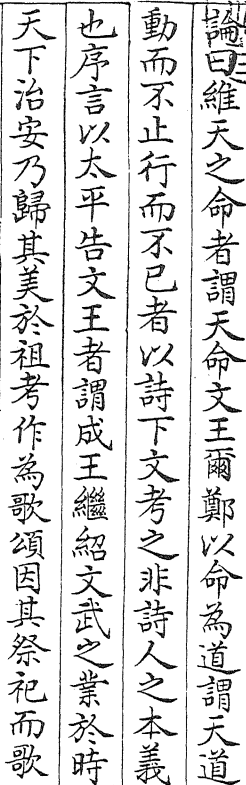 論曰維天之命者謂天命文王爾鄭以命為道謂天道
動而不止行而不已者以詩下文考之非詩人之本義
也序言以太平告文王者謂成王繼紹文武之業於時
天下治安乃歸其美於祖考作為歌頌因其祭祀而歌